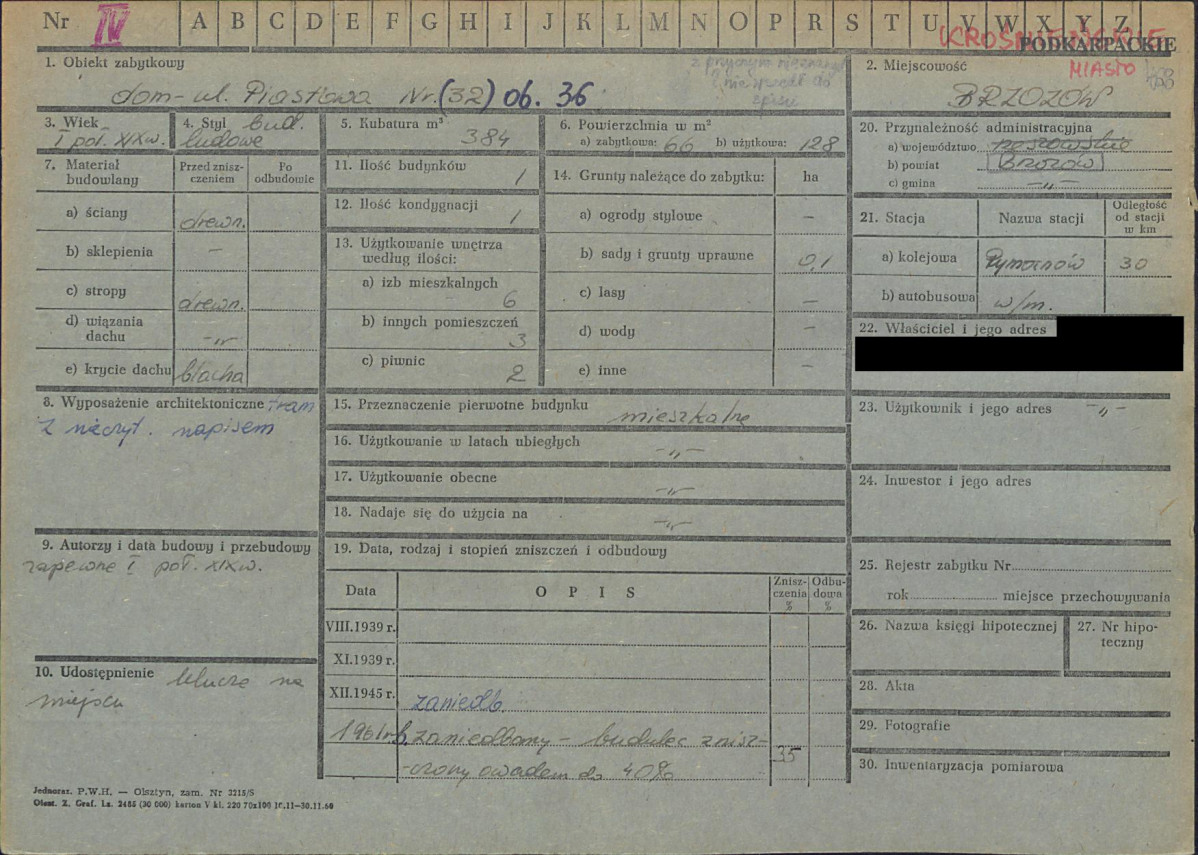 Nr IV A B C D E F G H I J K L M N O P R S T U V W X Y Z
KROŚNIEŃSKIE
PODKARPACKIE
MIASTO
1. Obiekt zabytkowy
dom - ul. Piastowa Nr. (32) ob. 36
do spisu
2. Miejscowość
BRZOZÓW
3. Wiek
I poł. XIXw.
4. Styl bud.
ludowe
5. Kubatura m³
384
6. Powierzchnia w m²
a) zabytkowa: 66 b) użytkowa: 128
7. Materiał budowlany
Przed zniszczeniem
Po odbudowie
a) ściany drewn.
b) sklepienia –
c) stropy drewn.
d) wiązania dachu -"-
e) krycie dachu blacha
8. Wyposażenie architektoniczne tram
z nieczyt. napisem
9. Autorzy i data budowy i przebudowy
zapewne I poł. XIXw.
10. Udostępnienie klucze na
miejscu
11. Ilość budynków
1
12. Ilość kondygnacji
1
13. Użytkowanie wnętrza
według ilości:
a) izb mieszkalnych
6
b) innych pomieszczeń
3
c) piwnic
2
14. Grunty należące do zabytku: ha
a) ogrody stylowe –
b) sady i grunty uprawne 0,1
c) lasy –
d) wody –
e) inne –
15. Przeznaczenie pierwotne budynku
mieszkalne
16. Użytkowanie w latach ubiegłych
-"-
17. Użytkowanie obecne
-"-
18. Nadaje się do użycia na
-"-
19. Data, rodzaj i stopień zniszczeń i odbudowy
Data
O P I S
Zniszczenia %
Odbudowa %
VIII.1939 r.
XI.1939 r.
XII.1945 r. zaniedb.
1961r. b. zaniedbany – budulec znisz-
-czony owadem do 40% 35
20. Przynależność administracyjna
a) województwo rzeszowskie
b) powiat BRZOZÓW
c) gmina -"-
21. Stacja
Nazwa stacji
Odległość od stacji w km
a) kolejowa Rymanów 30
b) autobusowa w/m.
22. Właściciel i jego adres
23. Użytkownik i jego adres -"-
24. Inwestor i jego adres
25. Rejestr zabytku Nr
rok miejsce przechowywania
26. Nazwa księgi hipotecznej
27. Nr hipoteczny
28. Akta
29. Fotografie
30. Inwentaryzacja pomiarowa
Jednoraz. P.W.H. — Olsztyn, zam. Nr 2215/S
Olszt. Z. Graf. Lz. 2465 (30 000) karton V kl. 220 70x100 10.11—30.11.60